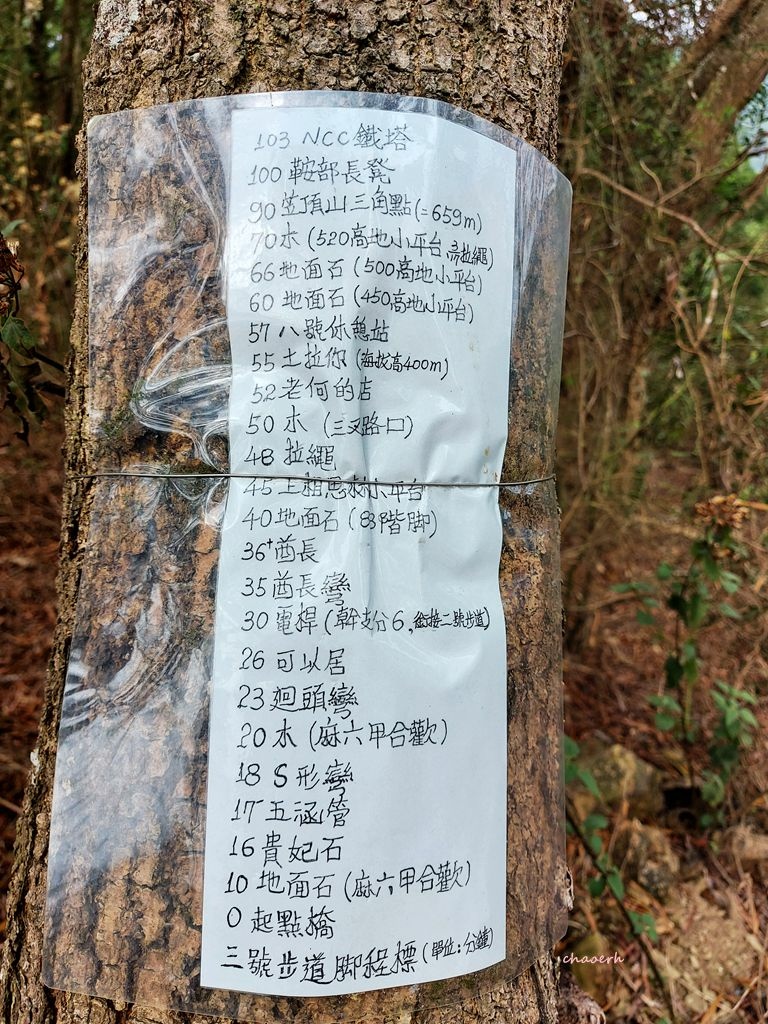 103 NCC鐵塔
100 鞍部長凳
90 笠頂山三角點(=659m)
70 水 (520高地小平台,需拉繩)
66 地面石 (500高地小平台)
60 地面石 (450高地小平台)
57 八號休憩站
55 土拉你 (海拔高400m)
52 老何的店
50 水 (三叉路口)
48 拉繩
45 上相思樹小平台
40 地面石 (88階腳)
36⁺酋長
35 酋長彎
30 電桿 (幹支分6,銜接二號步道)
26 可以居
23 廻頭彎
20 水 (麻六甲合歡)
18 S形彎
17 五涵管
16 貴妃石
10 地面石 (麻六甲合歡)
0 起點橋
三號步道腳程標 (單位:分鐘)
chaoerh